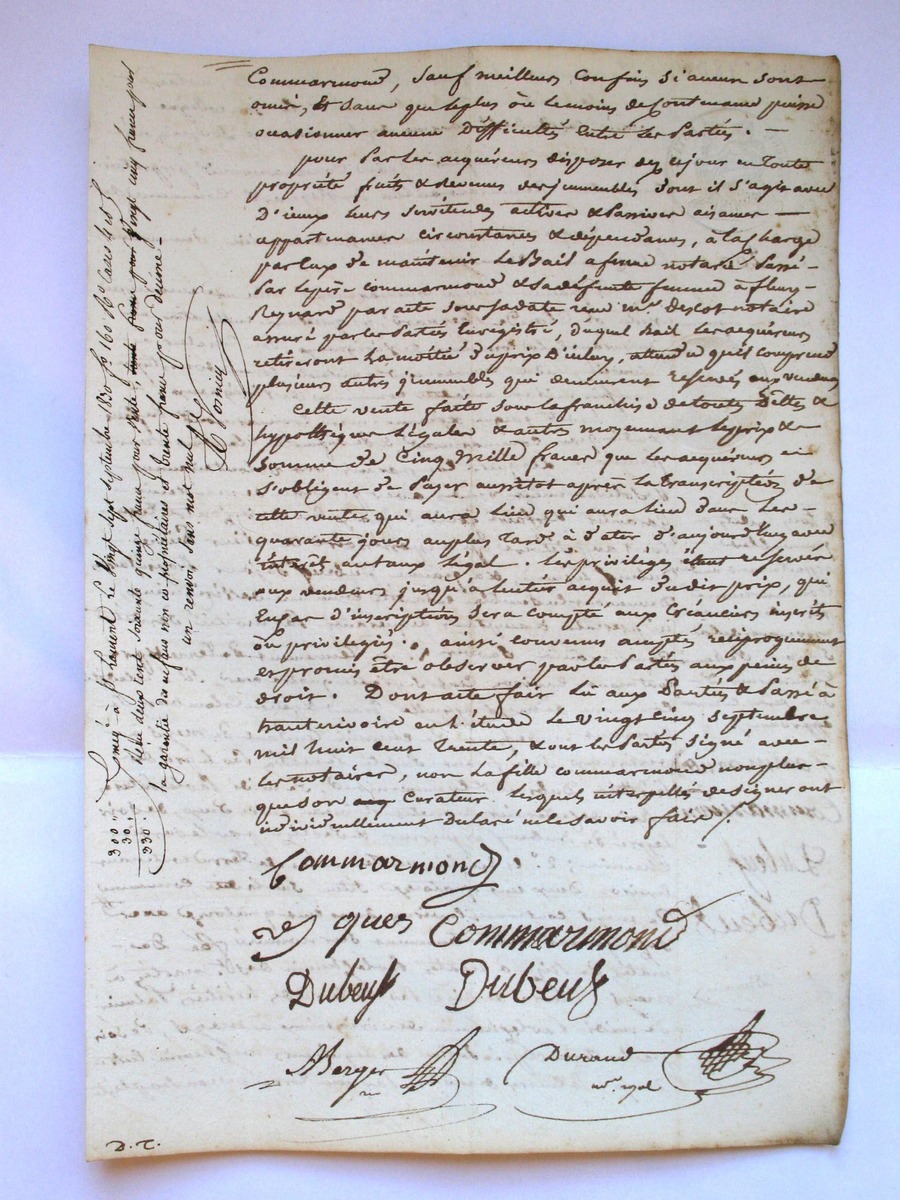 Commarmond, Sauf meilleurs Confins si aucun sont
omis, et Sans que le plus ou le moins de Contenance puisse
occasionner aucune Difficultés entre les Parties. —
pour Par les acquéreurs disposer dez ce jour en toute
propriété fruits & Revenus des immeubles dont il s'agit avec
D'iceux leurs Servitudes actives & Passives aisances —
appartenances circonstances & dépendances, à la Charge
par Eux de maintenir le Bail a ferme notarié Passé —
Par le père Commarmond & sa défunte femme à fleury
Reynard par acte sous sa date reçu me notaire
assuré par les Parties Enregistré, duquel Bail Les acquéreurs
retireront La moitié du prix D'icelui, attendu qu'il comprend
plusieurs autres immeubles qui demeurent reservés aux vendeurs
Cette vente faite sous la franchise de toutes Dettes &
hypothèques Légales & autres moyennant le prix &
Somme de Cinq Mille francs que les acquéreurs —
S'obligent de Payer aussitot après la transcription de
cette vente qui aura lieu qui aura lieu dans Les —
quarante jours au plus Tard à dater d'aujourd'huy avec
intérêt au taux légal. Les privilèges étant reservés
aux vendeurs jusqu'à l'entier acquit dudit prix, qui
En cas d'inscriptions sera compté aux Créanciers inscrits
ou privilégiés. ainsi convenus acceptés réciproquement
et promis être observer par les Parties aux peines de
droit. Dont acte fait lu aux Parties & Passé à
hauterivoire en l'étude Le vingt cinq septembre
mil huit cent trente, & ont les Parties signé avec —
les notaires, non La fille commarmond non plus —
que son Curateur lesquels interpellés de signer ont
individuellement Déclaré ne le savoir faire /.
Commarmond
ques Commarmond
Dubeuf Dubeuf
Berger Durand
D. T.
Enregistré à St Laurent le Vingt sept septembre 1830 fo 160 Ro Cases 4 et 5
Reçu deux cents Soixante quinze francs pour vente, Vingt cinq francs pour
la garantie des enfans non co-propriétaires et trente francs pour décime —
un renvoi sans mot nul
300.
30.
330.